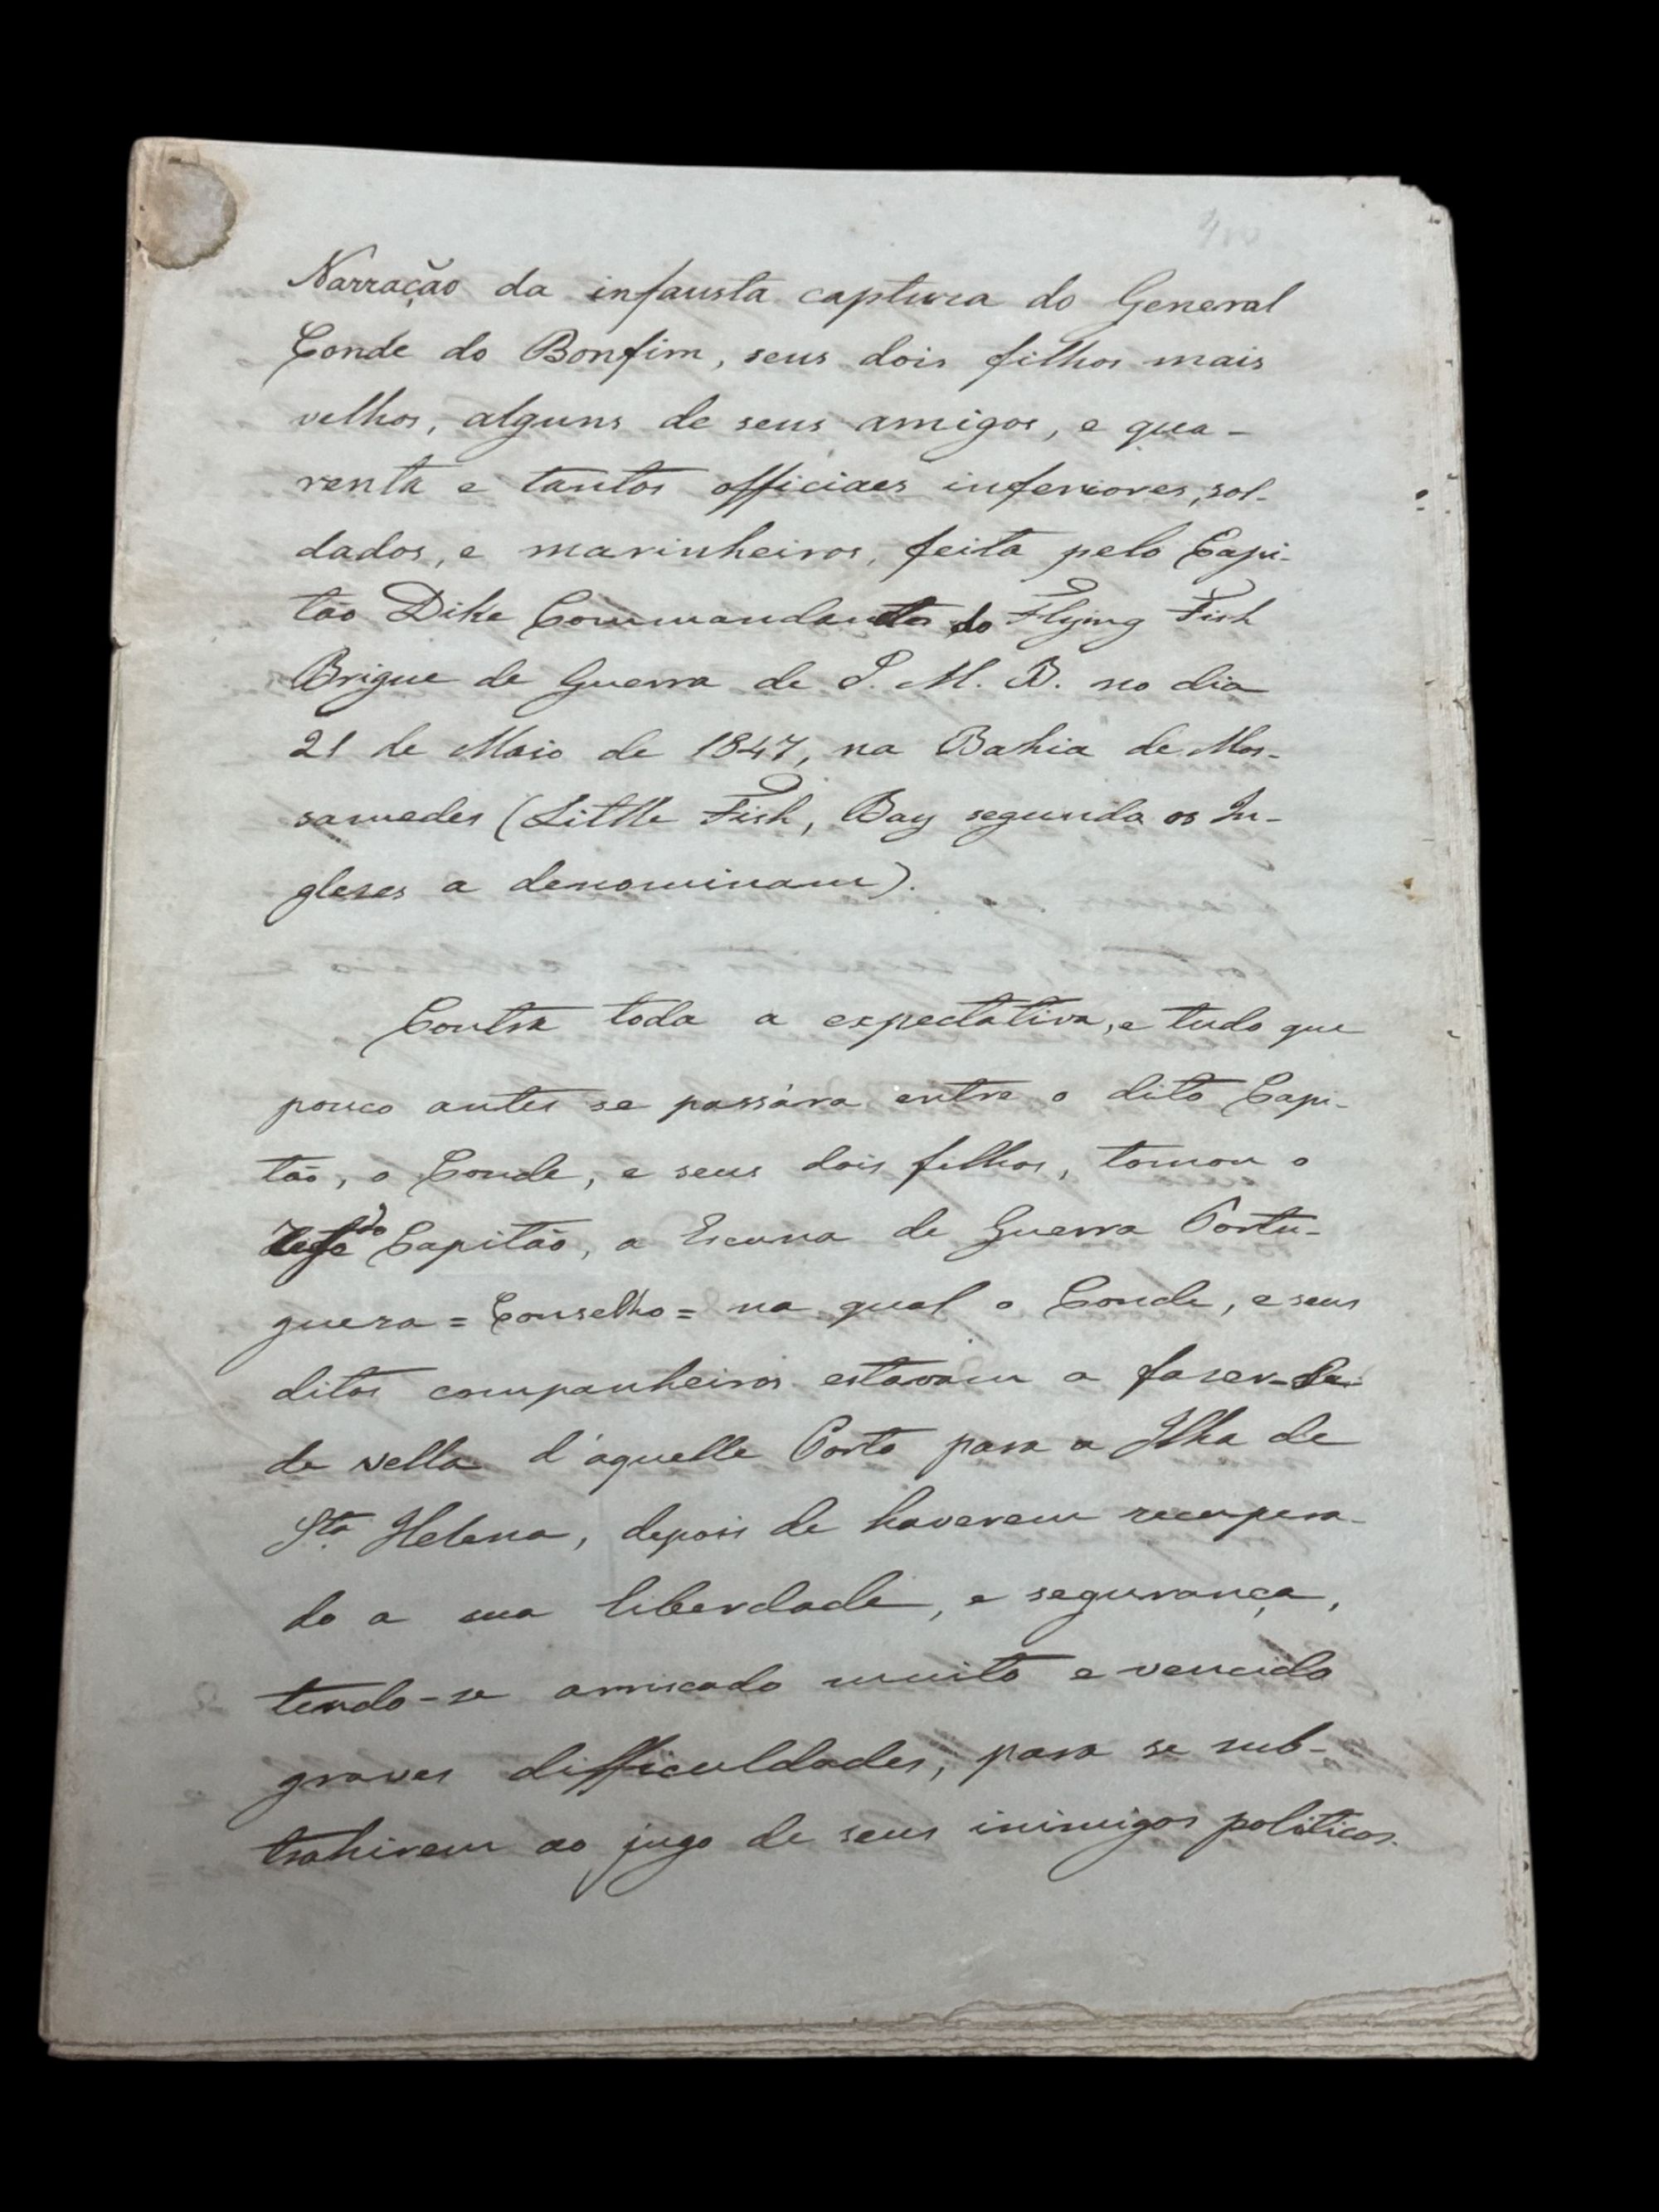 Narração da infausta captura do General
Conde do Bonfim, seus dois filhos mais
velhos, alguns de seus amigos, e qua-
renta e tantos officiaes inferiores, sol-
dados, e marinheiros, feita pelo Capi-
tão Dike Commandante do Flying Fish
Brigue de Guerra de S. M. B. no dia
21 de Maio de 1847, na Bahia de Mos-
samedes (Little Fish, Bay segundo os In-
gleses a denominam).
Contra toda a expectativa, e tudo que
pouco antes se passára entre o dito Capi-
tão, o Conde, e seus dois filhos, tomou o
Capitão, a Escuna de Guerra Portu-
gueza = Conselho = na qual o Conde, e seus
ditos companheiros estavam a faser-se
de vella d'aquelle Porto para a Ilha de
Sta. Helena, depois de haverem recupera-
do a sua liberdade, e segurança,
tendo-se arriscado muito e vencido
graves difficuldades, para se sub-
trahirem ao jugo de seus inimigos politicos.